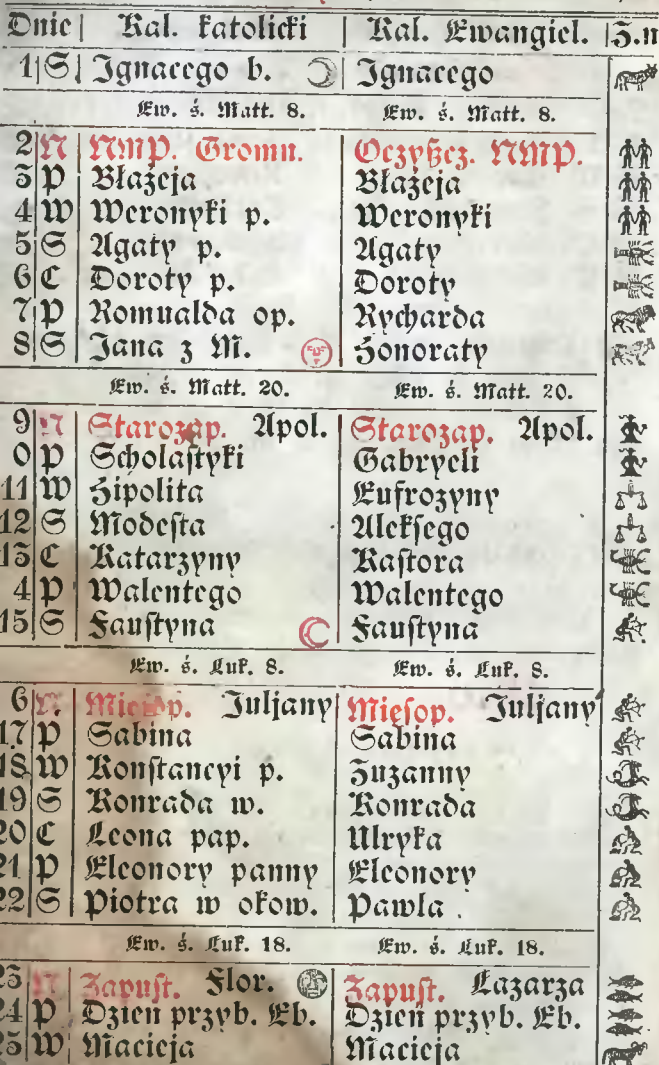 Dnie | Kal. katolicki | Kal. Ewangiel. | Z.n
1 S Ignacego b. Ignacego
Ew. ś. Matt. 8. Ew. ś. Matt. 8.
2 N NMP. Gromn. Oczyßcz. NMP.
3 P Błażeja Błażeja
4 W Weronyki p. Weronyki
5 S Agaty p. Agaty
6 C Doroty p. Doroty
7 P Romualda op. Rycharda
8 S Jana z M. Honoraty
Ew. ś. Matt. 20. Ew. ś. Matt. 20.
9 N Starozap. Apol. Starozap. Apol.
0 P Scholastyki Gabryeli
11 W Hipolita Eufrozyny
12 S Modesta Aleksego
13 C Katarzyny Kastora
4 P Walentego Walentego
15 S Faustyna Faustyna
Ew. ś. Łuk. 8. Ew. ś. Łuk. 8.
6 N Mięsop. Juljany Mięsop. Juljany
17 P Sabina Sabina
18 W Konstancyi p. Zuzanny
19 S Konrada w. Konrada
20 C Leona pap. Ulryka
21 P Eleonory panny Eleonory
22 S Piotra w okow. Pawla
Ew. ś. Łuk. 18. Ew. ś. Łuk. 18.
23 N Zapust. Flor. Zapust. Łazarza
24 P Dzień przyb. Eb. Dzień przyb. Eb.
25 W Macieja Macieja